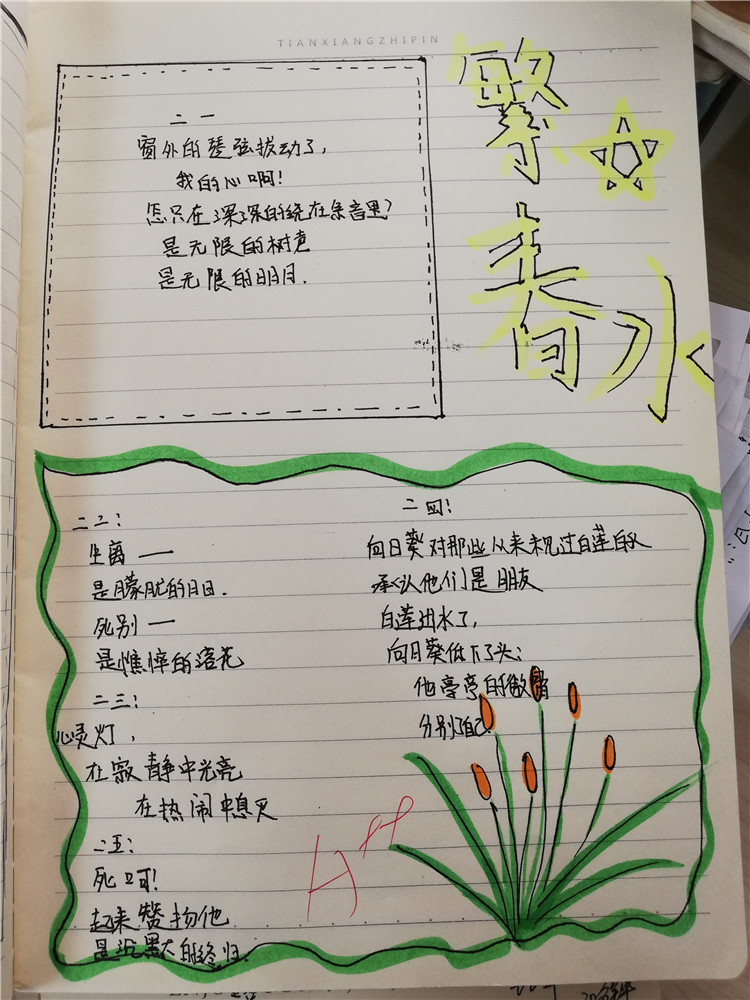 TIANXIANGZHIPIN
繁
春水
二一
窗外的琴弦拔动了，
我的心啊！
怎只在深深的绕在余音里？
是无限的树声
是无限的明月.
二二：
生离一
是朦胧的日日.
死别一
是憔悴的落花
二三：
心灵灯，
在寂静中光亮
在热闹中息灭
二五：
死呵！
起来赞扬他
是沉默的终归.
二四：
向日葵对那些从未见过白莲的人
承认他们是朋友
白莲出水了，
向日葵低下了头：
他亭亭的傲骨
分别了自己
A++